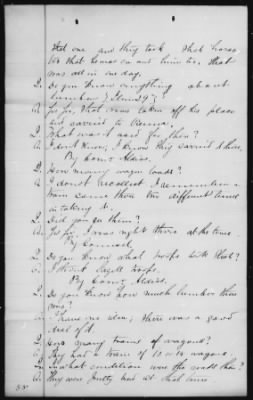 that one and they took that horse
We that horses ca and lumber, that
was all in one day.
Q. Do you know anything about
lumber?
A. Yes sir, that was taken off the place
and carried to
Q. What was it used for then?
A. I don't know; I know they carried it here.
By Com'r Aldis.
Q. How many wagon loads?
A. I don't recollect I remember a
train came there two different times
in taking it.
Q. Did you see them?
A. Yes sir, I was right there at the time.
By Counsel.
Q. Do you know what troops took that?
A. I think troops.
By Com'r Aldis.
Q. Do you know how much lumber there
was?
A. I have no idea; there was a good
deal of it.
Q. How many trains of wagons?
A. They had a train of 10 or 12 wagons
Q. In what condition were the roads then?
A. They were pretty bad at that time.